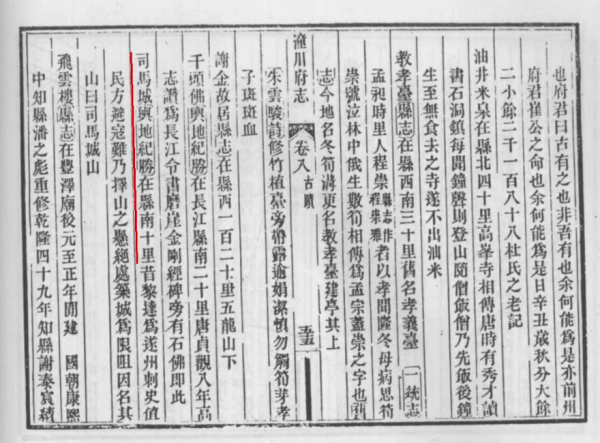 也府君曰古有之也非吾有也余何能爲是亦前州
府君崔公之命也余何能爲是日辛丑歲秋分大餘
二小餘二千一百八十八杜氏之老記
油井米泉在縣北四十里高峯寺相傳唐時有秀才讀
書石洞鎮每聞鐘聲則登山隨僧飯僧乃先飯後鐘
生至無食去之寺遂不出油米
教孝臺縣志在縣西南三十里舊名孝義臺 一統志
孟昶時里人程崇縣志作程崇雅者以孝聞隆冬母病思筍
崇號泣林中俄生數筍相傳爲孟宗蓋崇之字也舊
志今地名冬筍溝更名教孝臺建亭其上
潼川府志 卷八 古蹟
朱雲駿詩修竹植臺旁帶露逾娟潔慎勿觸筍芽孝
子斑斑血
謝金故居縣志在縣西一百二十里五龍山下
千頭佛輿地紀勝在長江縣南二十里唐貞觀八年高
志讚爲長江令書磨崖金剛經碑旁有石佛即此
司馬城輿地紀勝在縣南十里昔黎達爲遂州刺史值
民方避寇難乃擇山之懸絕處築城爲限阻因名其
山曰司馬城山
飛雲樓縣志在豐澤廟後元至正年間建 國朝康熙
中知縣潘之彪重修乾隆四十九年知縣謝泰宸續